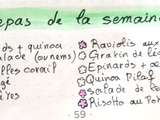 epas de la semain
ds + quinoa
alade (ou nems)
lles corail
gé
ires
Raviolis aux
Gratin de lé
Epinards + œ
Quinoa Pilaf
Salade de l
Risotto au Po
59